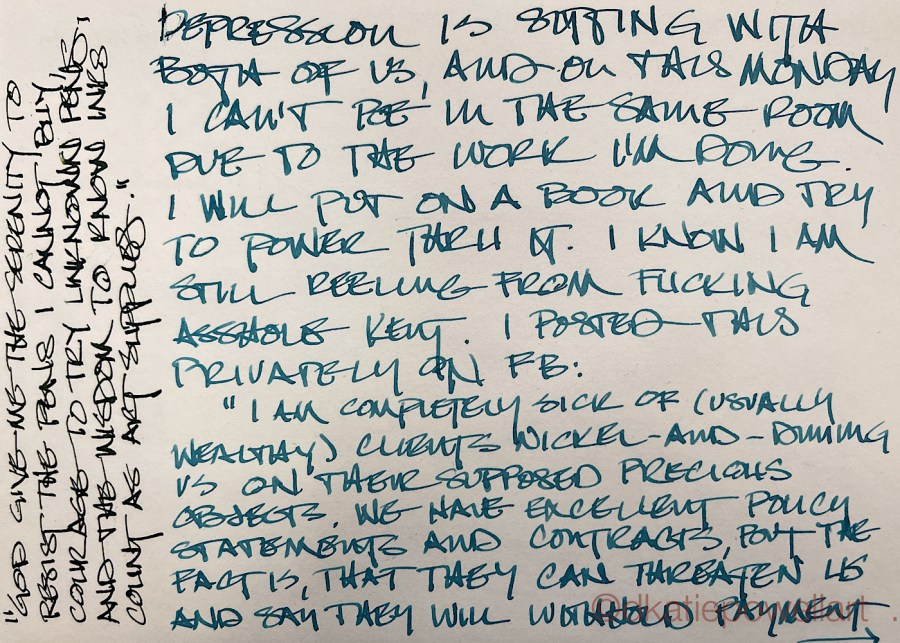 DEPRESSION IS SITTING WITH
BOTH OF US, AND ON THIS MONDAY
I CAN'T BE IN THE SAME ROOM
DUE TO THE WORK I'M DOING.
I WILL PUT ON A BOOK AND TRY
TO POWER THRU IT. I KNOW I AM
STILL REELING FROM FUCKING
ASSHOLE KENT. I POSTED THIS
PRIVATELY ON FB:
"I AM COMPLETELY SICK OF (USUALLY
WEALTHY) CLIENTS NICKEL-AND-DIMING
US ON THEIR SUPPOSED PRECIOUS
OBJECTS. WE HAVE EXCELLENT POLICY
STATEMENTS AND CONTRACTS, BUT THE
FACT IS, THAT THEY CAN THREATEN US
AND SAY THEY WILL WITHHOLD PAYMENT
"GOD GIVE ME THE SERENITY TO
RESIST THE PENS I CANNOT BUY,
COURAGE TO TRY UNKNOWN PENS,
AND THE WISDOM TO KNOW INKS
COUNT AS ART SUPPLIES."